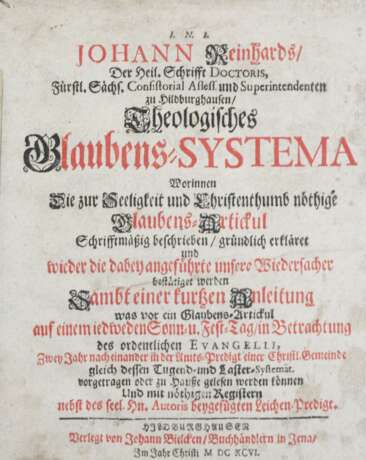 I. N. I.
JOHANN Reinhards/
Der Heil. Schrifft DOCTORIS,
Fürstl. Sächs. Consistorial Assess. und Superintendenten
zu Hildburghausen/
Theologisches
Glaubens-SYSTEMA
Worinnen
Die zur Seeligkeit und Christenthumb nöthige
Glaubens-Artickul
Schrifftmäßig beschrieben/ gründlich erkläret
und
wieder die dabey angeführte unsere Wiedersacher
bestätiget werden
Sambt einer kurtzen Anleitung
was vor ein Glaubens-Artickul
auf einem iedweden Sonn- u. Fest-Tag/ in Betrachtung
des ordentlichen EVANGELII,
Zwey Jahr nach einander in der Amts-Predigt einer Christl. Gemeinde
gleich dessen Tugend- und Laster-Systemat.
vorgetragen oder zu Hauße gelesen werden können
Und mit nöthigen Registern
nebst des seel. Hn. Autoris beygefügten Leichen-Predigt.
HILDBURGHAUSEN
Verlegt von Johann Bielcken/ Buchhändlern in Jena/
Im Jahr Christi M DC XCVI.